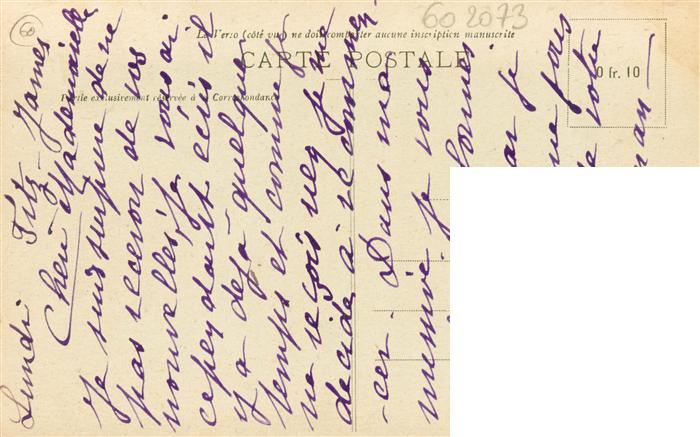 60
60 2073
Le Verso (côté vue) ne doit comporter aucune inscription manuscrite
CARTE POSTALE
Partie exclusivement réservée à la Correspondance
0 fr. 10
Lundi Fitz-James
Cher Mademoiselle
Je suis surpris de ne
pas recevoir de vos
nouvelles je vous ai
cependant écris il
y a déjà quelque
temps et comme je
ne reçois rien je me
décide à recommen
-cer. Dans ma
je vous
je
fois
votre